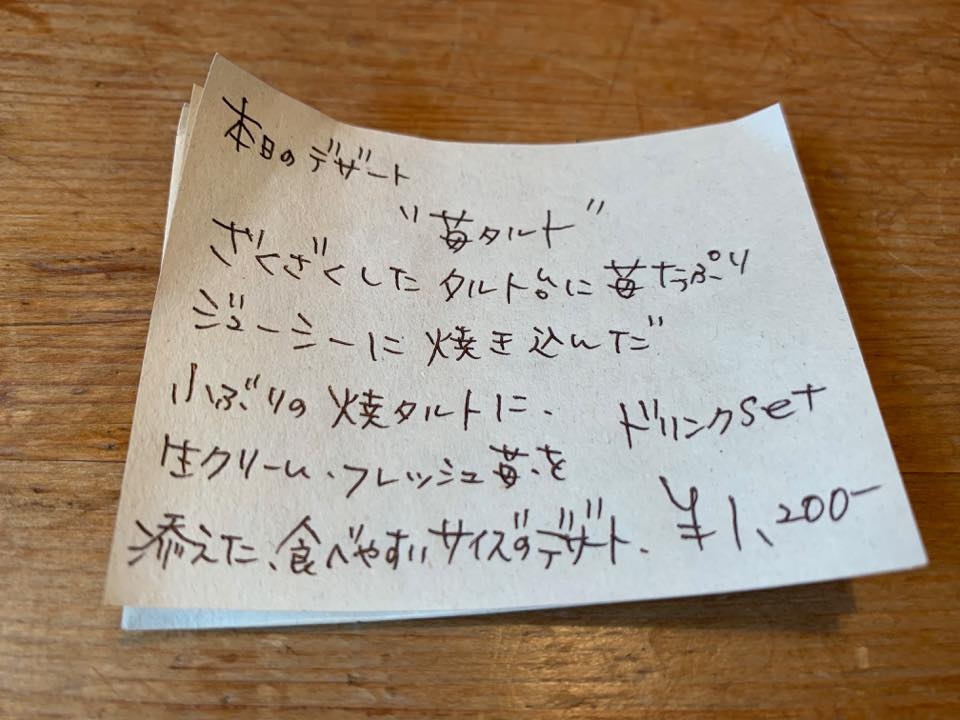 本日のデザート
"苺タルト"
ざくざくしたタルト台に苺たっぷり
ジューシーに焼き込んだ
小ぶりの焼タルトに、
生クリーム、フレッシュ苺、を
添えた、食べやすいサイズのデザート、
ドリンクset
¥1,200-